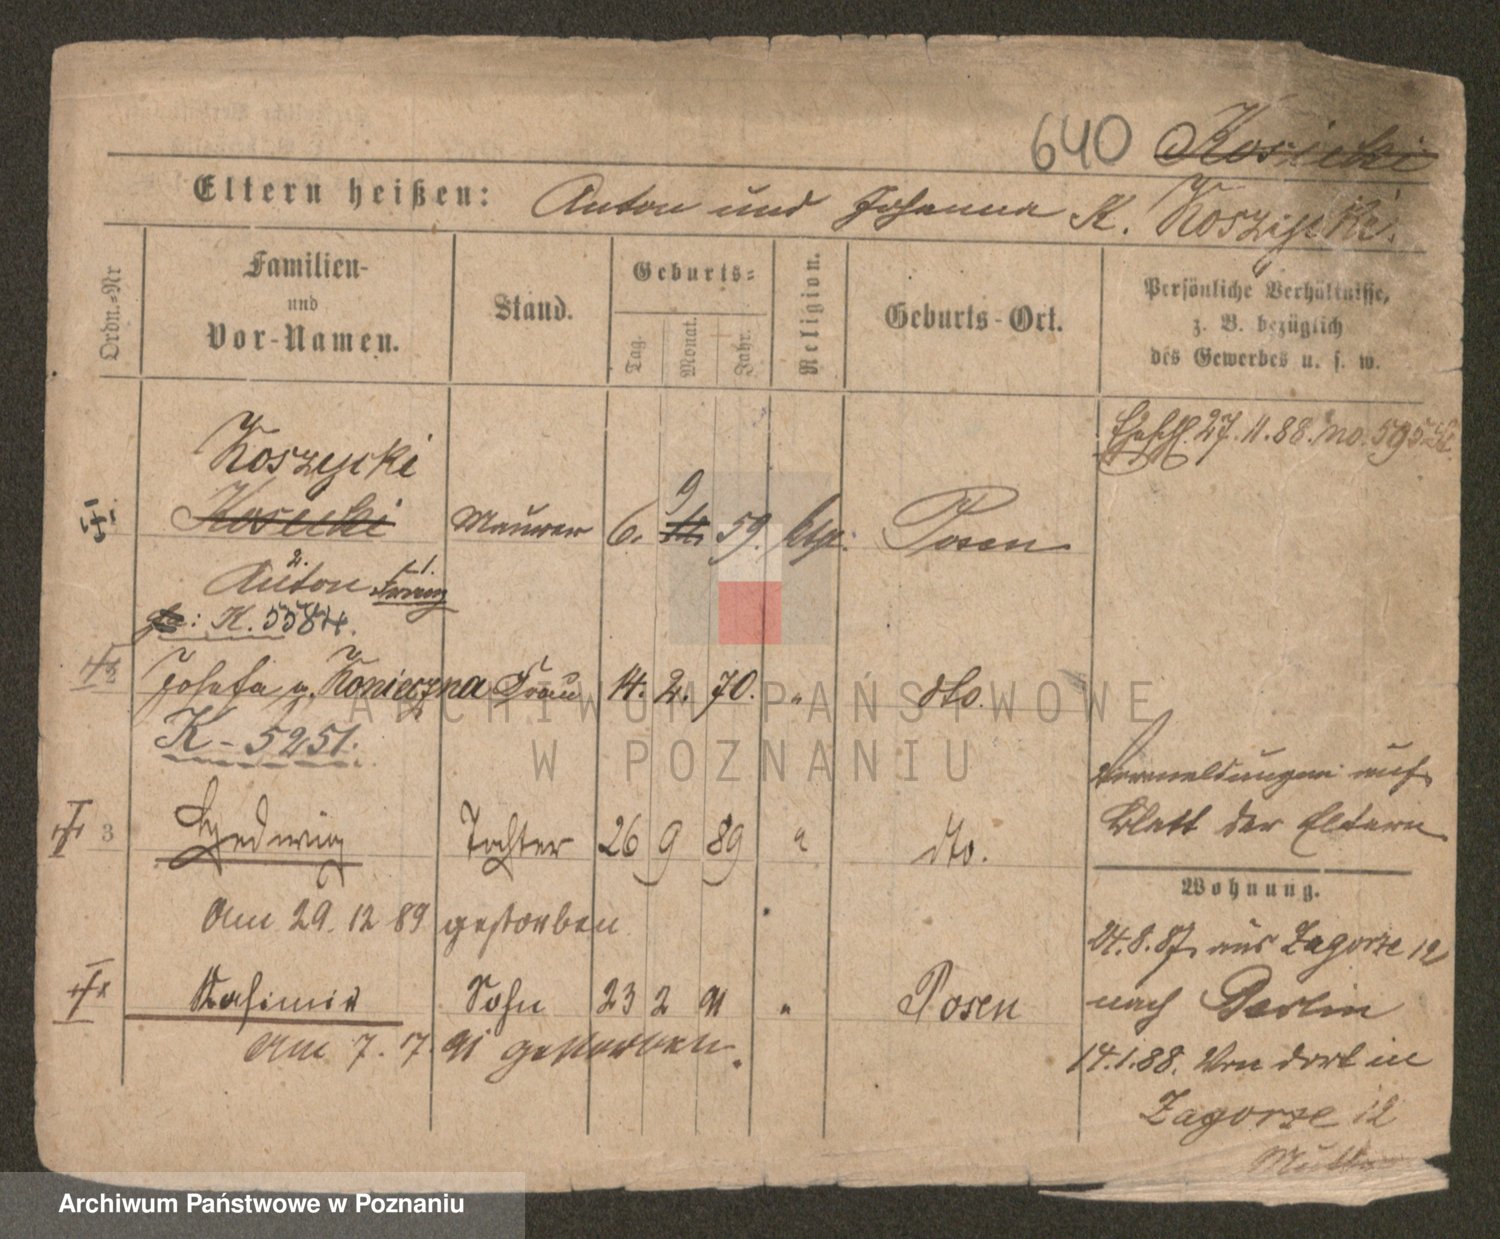 640 Kosicki
Eltern heißen: Anton und Johanna K. Koszycki.
Ordn.=Nr
Familien-
und
Vor-Namen.
Stand.
Geburts=
Tag.
Monat.
Jahr.
Religion.
Geburts-Ort.
Persönliche Verhältnisse,
z. B. bezüglich
des Gewerbes u. s. w.
Eheschl. 27. 11. 88. No. 595
Koszycki
Kosicki Maurer 6. 9 59. ktp. Posen
2. 1.
Anton Franz
K. 5584.
2 Josefa g. Konieczna Frau 14. 2. 70. " dto.
K - 5251.
3 Hedwig Tochter 26 9 89 " dto.
Am 29. 12 89 gestorben
Kasimir Sohn 23 2 91 " Posen
Am 7. 7. 91 gestorben.
Vermeldungen auf
Blatt der Eltern
Wohnung.
24. 8. 87. aus Zagorze 12
nach Berlin
14. 1. 88. von dort in
Zagorze 12
ARCHIWUM PAŃSTWOWE
W POZNANIU
Archiwum Państwowe w Poznaniu